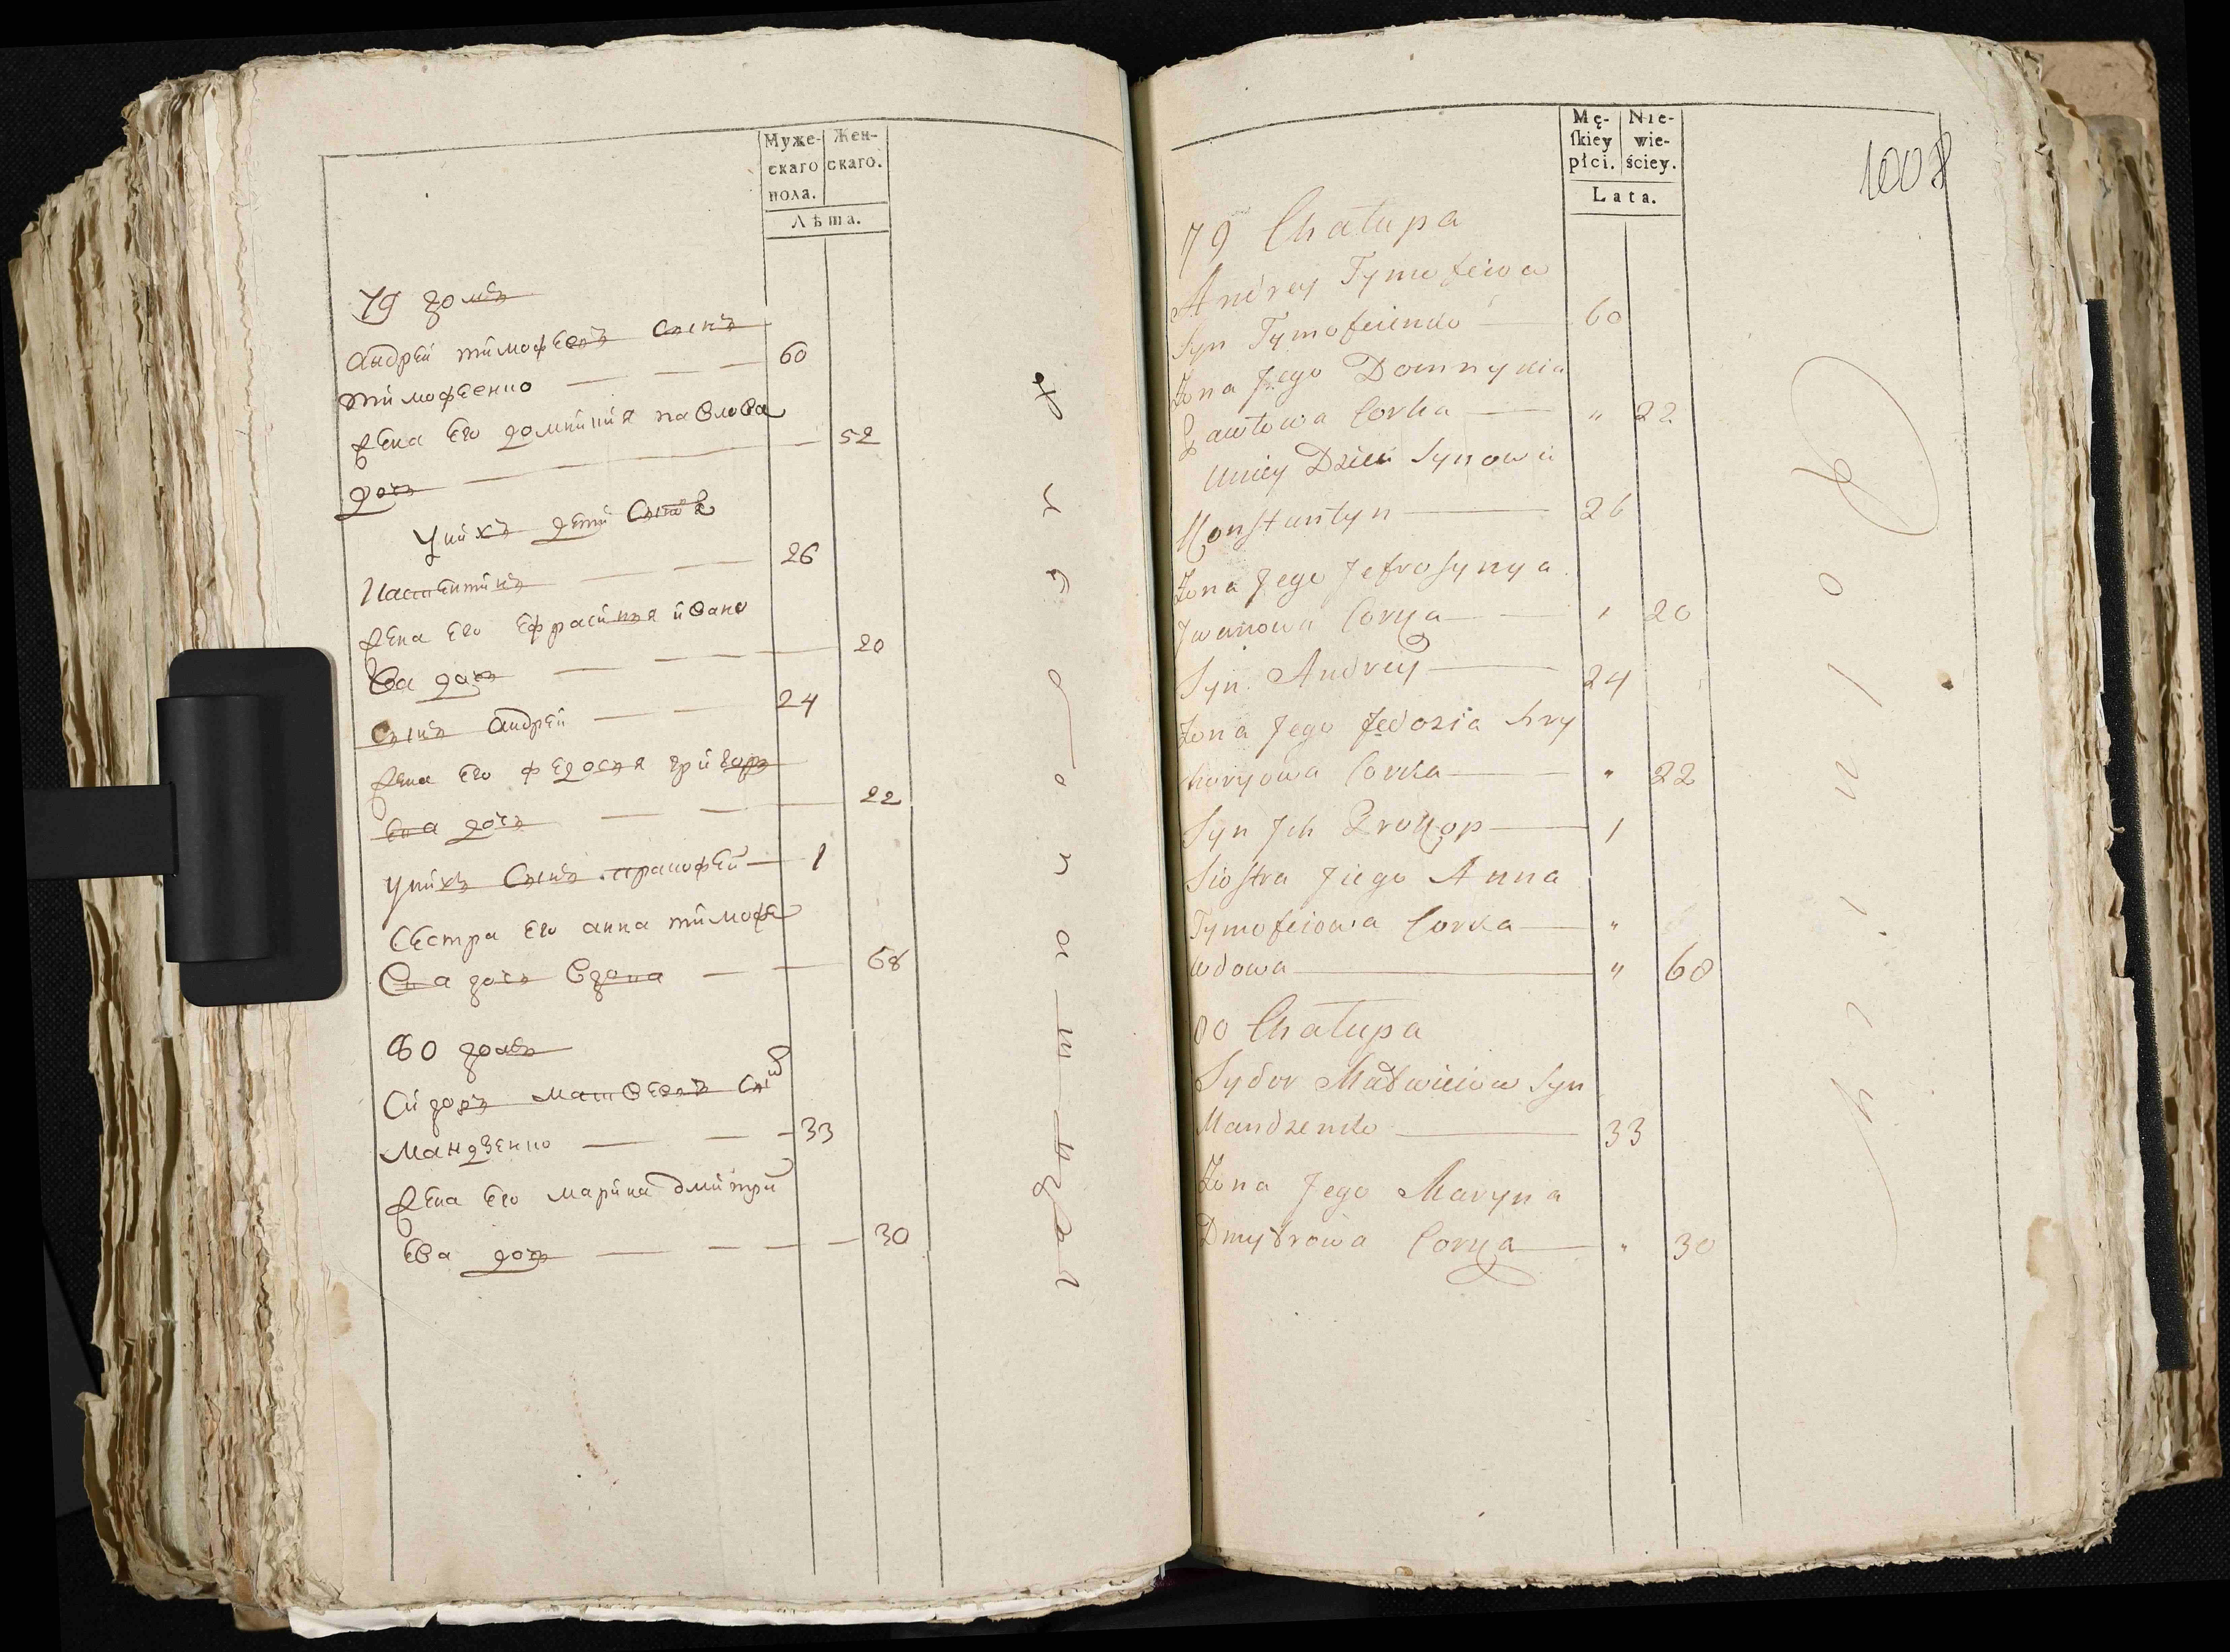 Муже-
скаго
пола.
Жен-
скаго.
Лѣта.
79 домъ
Андрей тимофеевъ Сынъ
тимофеенко — — — 60
жена Его домникия павлова
дочь — 52
У них дети Сынѡве
Костентинъ — — 26
жена Его Ефросиния ивано
ва дочь — — — 20
Сынъ андрей — — 24
жена Его Федосья григорь
ева дочь — — — 22
У них Сынъ пракофей — 1
Сестра Его анна тимофе
ева дочь вдова — — 68
80 домъ
Сидоръ матвеевъ Сынъ
Мандзенко — — — 33
жена Его марина дмитри
Ева дочь — — — — 30
Mę-
ſkiey
płci.
Nie-
wie-
ściey.
Lata.
1008
79 Chałupa
Andrey Tymofeiow
Syn Tymofeienko — 60
Żona Jego Domnykia
Pawłowa Corka — " 22
Uniey Dzieci Synowie
Konstantyn — 26
Żona Jego Jefrosynya
Jwanowa Corka — " 20
Syn Andrey — 24
Żona Jego Fedozia Hry
horyowa Corka — " 22
Syn Jch Prokop — 1
Siostra Jiego Anna
Tymofeiowa Corka — "
wdowa — " 68
80 Chałupa
Sydor Matwieiow Syn
Mandzenko — 33
Żona Jego Maryna
Dmytrowa Corka — " 30